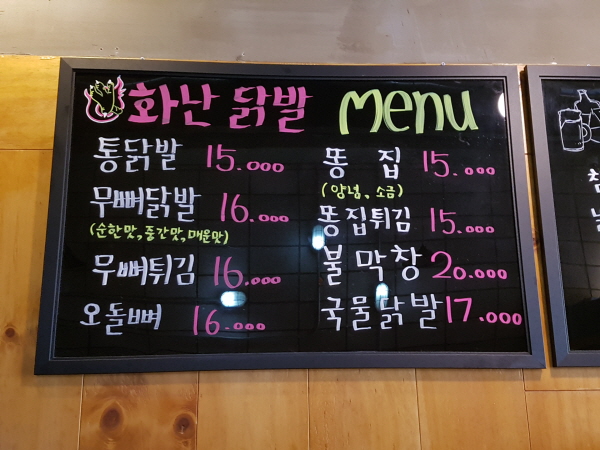 화난 닭발 Menu
통닭발 15.000
무뼈닭발 16.000
(순한맛,중간맛,매운맛)
무뼈튀김 16.000
오돌뼈 16.000
똥 집 15.000
(양념, 소금)
똥집튀김 15.000
불막창 20.000
국물닭발 17.000